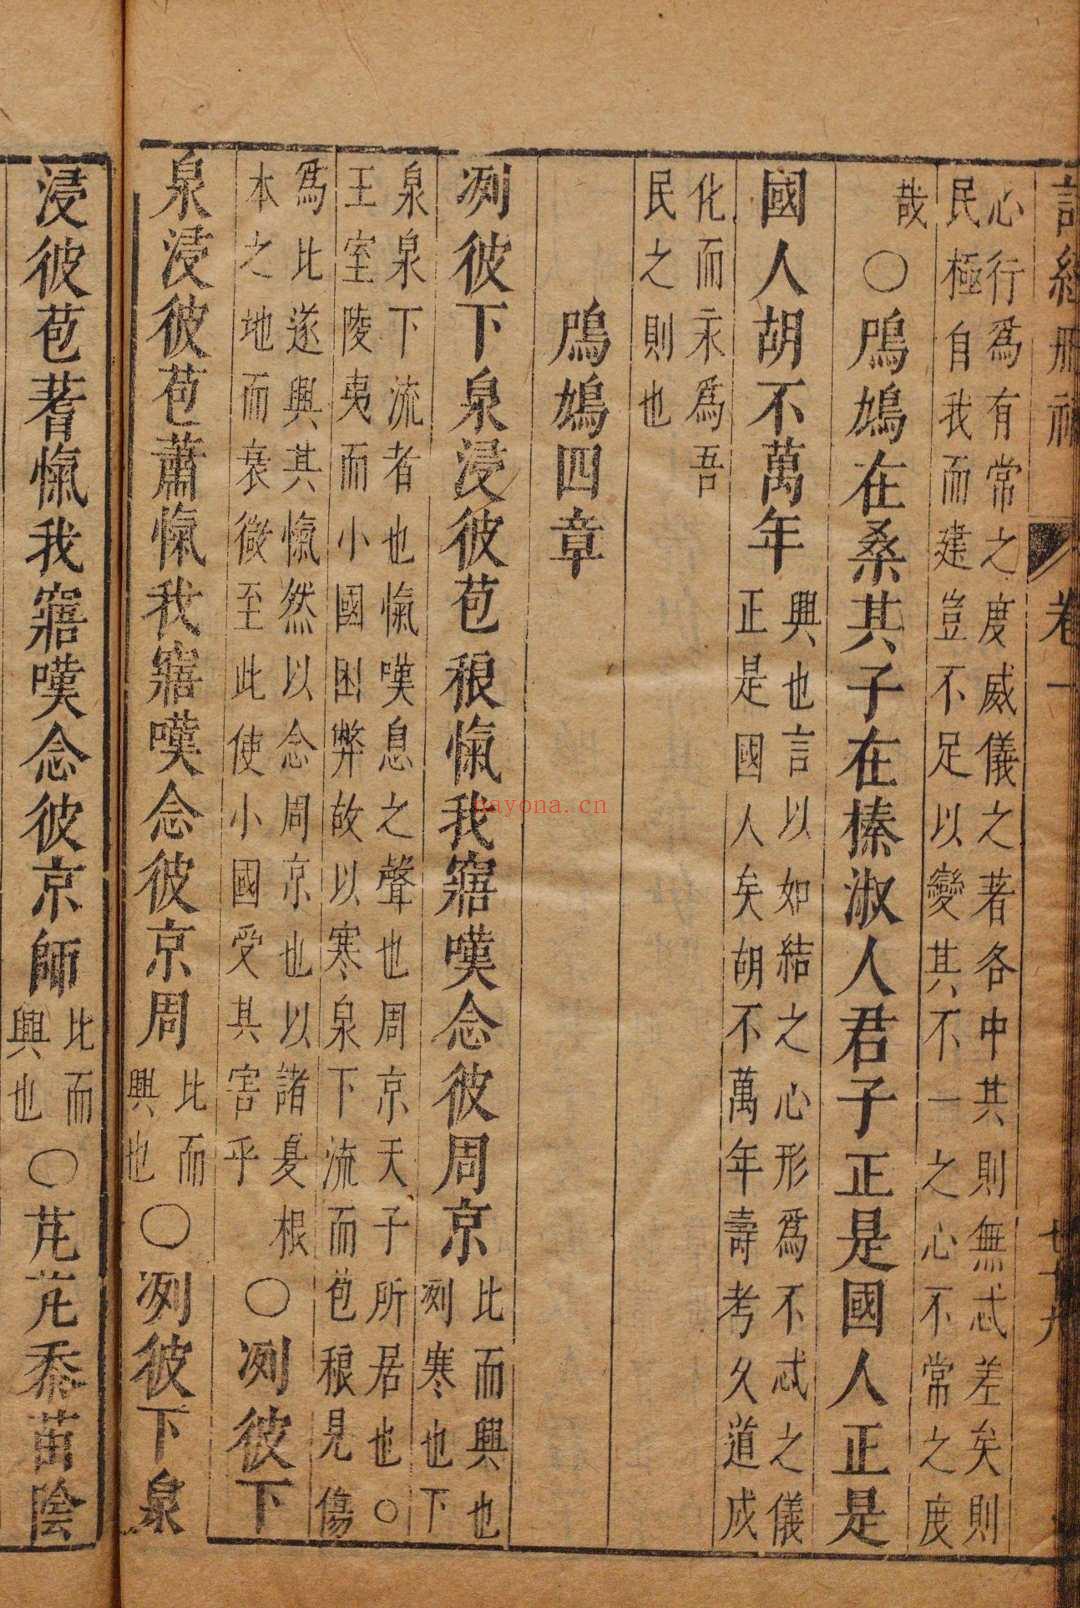 詩經刪補 卷一 七十九
心行爲有常之度威儀之著各中其則無忒差矣則
民極自我而建豈不足以變其不一之心不常之度
哉
○鳲鳩在桑其子在榛淑人君子正是國人正是
國人胡不萬年
興也言以如結之心形爲不忒之儀
正是國人矣胡不萬年壽考久道成
化而永爲吾
民之則也
鳲鳩四章
冽彼下泉浸彼苞稂愾我寤嘆念彼周京
比而興也
冽寒也下
泉泉下流者也愾嘆息之聲也周京天子所居也○
王室陵夷而小國困弊故以寒泉下流而苞稂見傷
爲比遂興其愾然以念周京也以諸夏根
本之地而衰微至此使小國受其害乎
○冽彼下
泉浸彼苞蕭愾我寤嘆念彼京周
比而
興也
○冽彼下泉
浸彼苞蓍愾我寤嘆念彼京師
比而
興也
○芃芃黍苗陰
nayona.cn